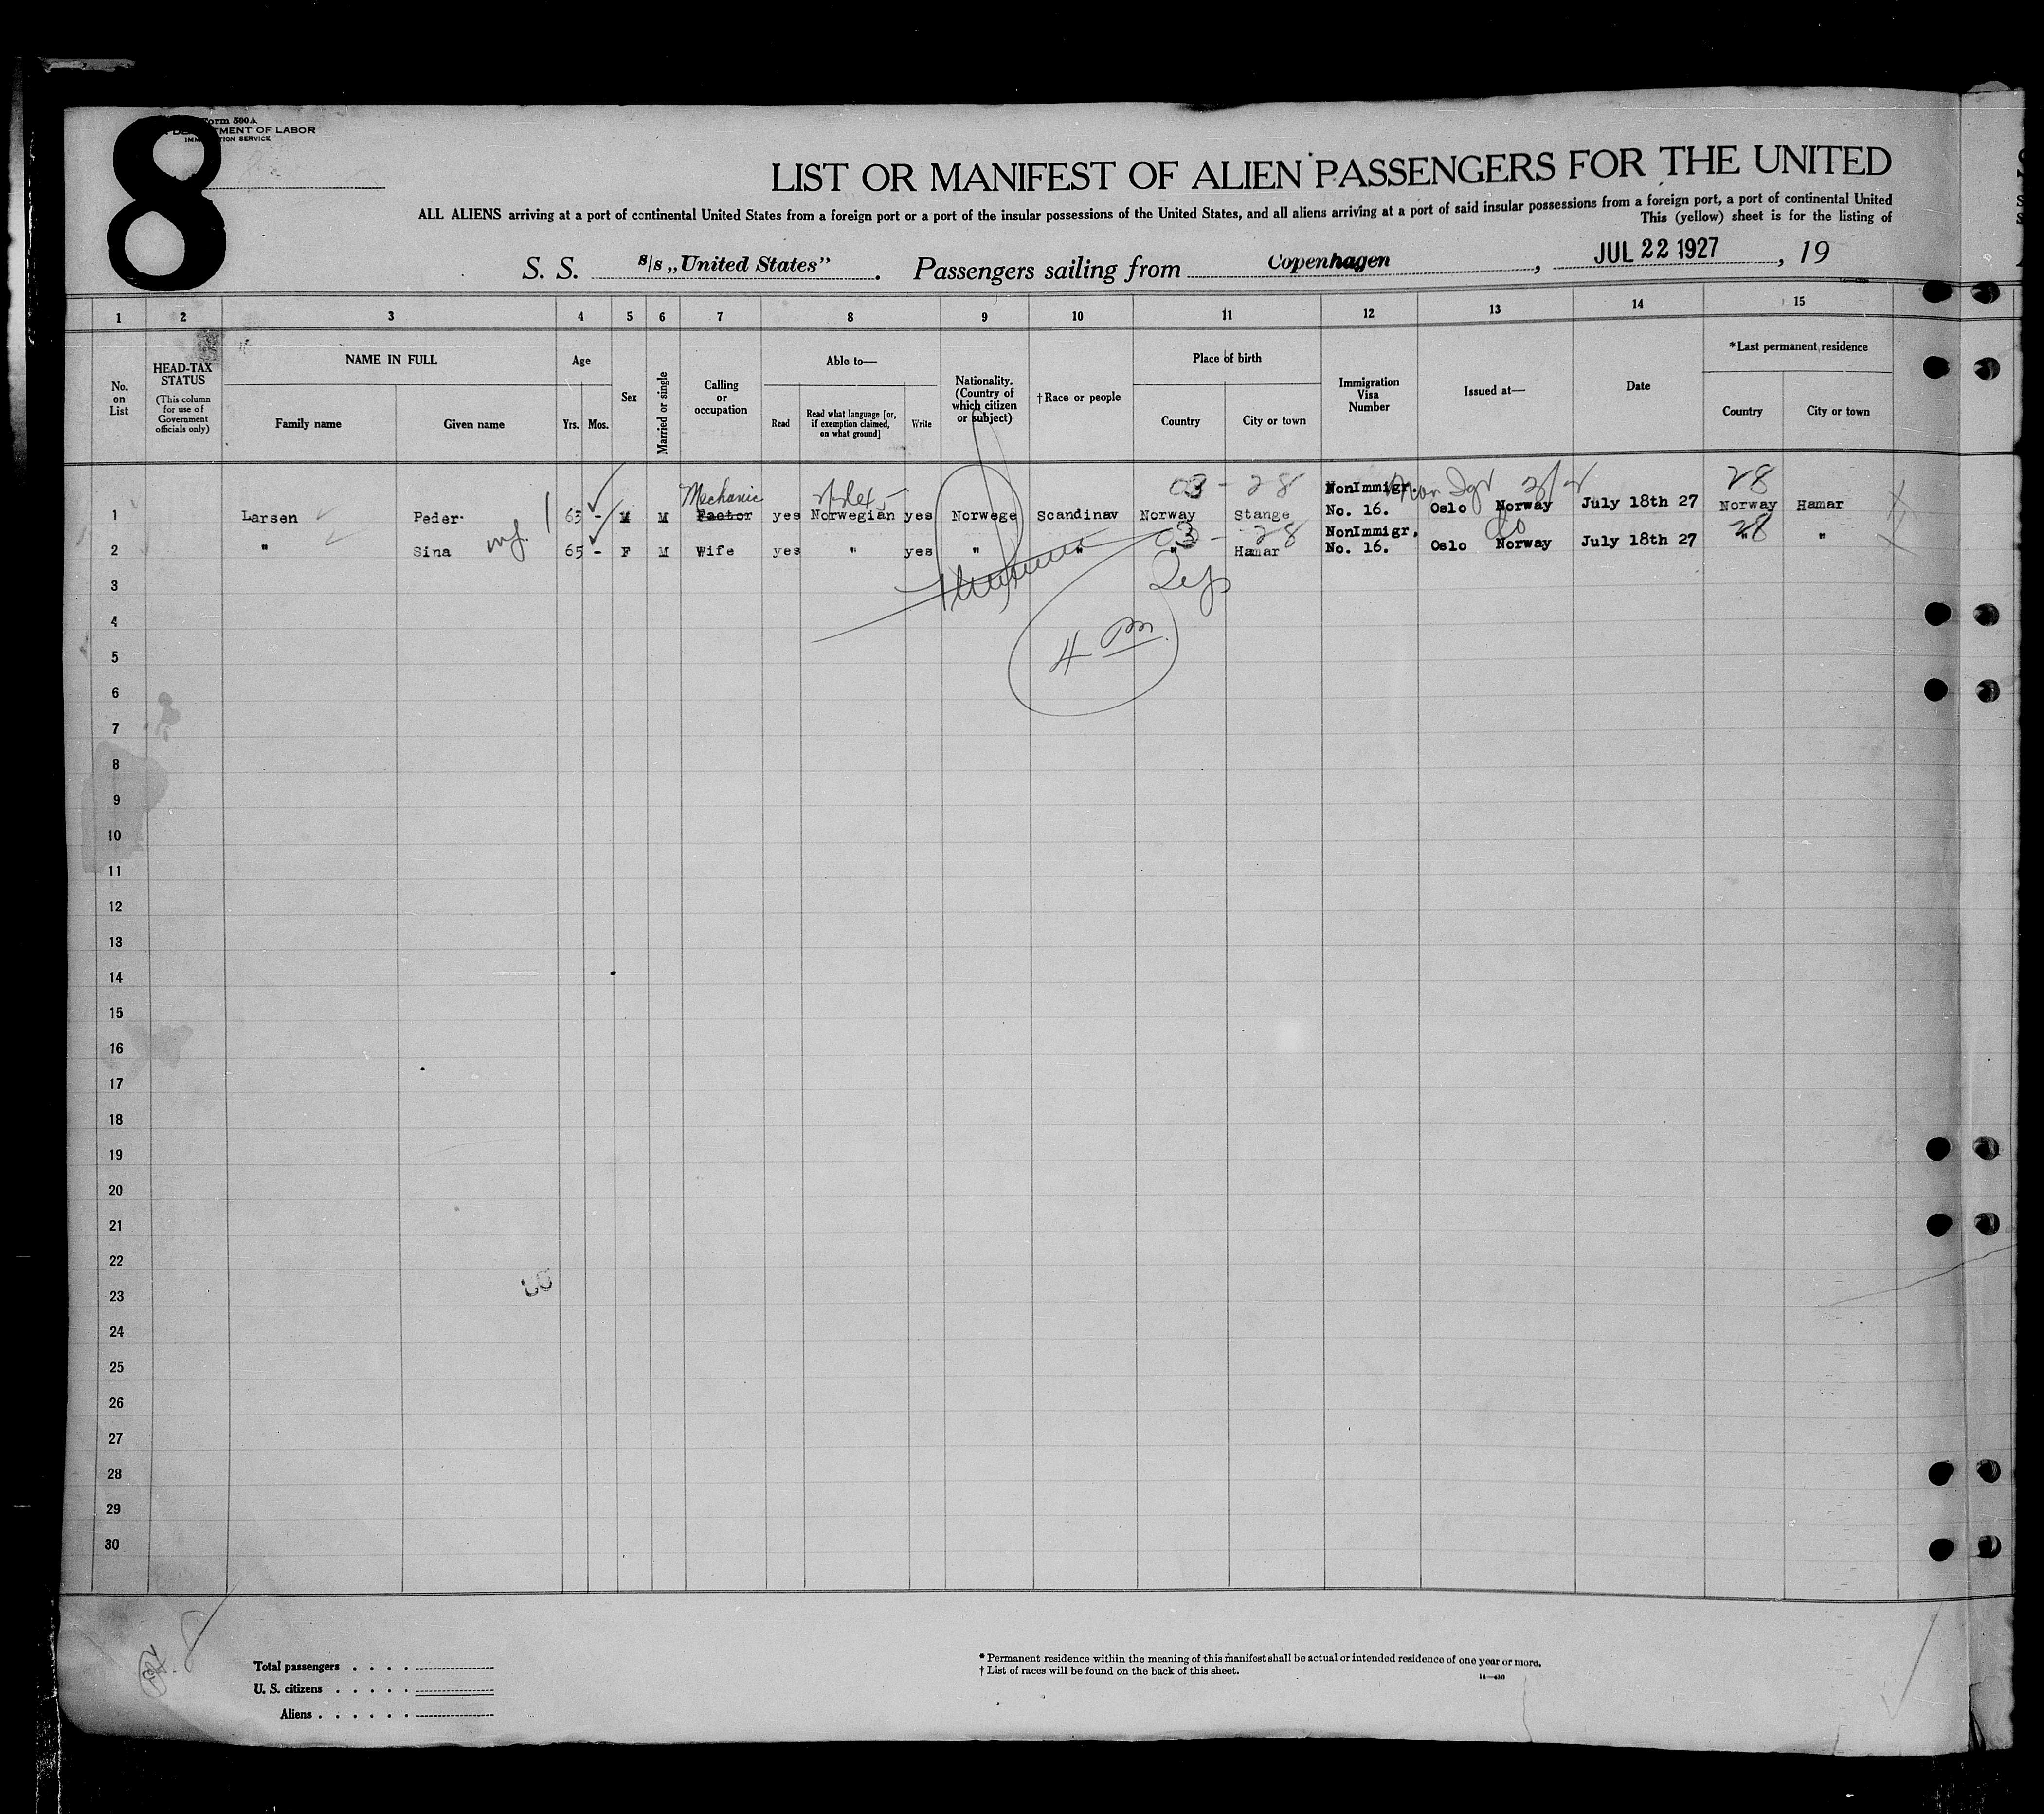 8
Form 500A
DEPARTMENT OF LABOR
IMMIGRATION SERVICE
LIST OR MANIFEST OF ALIEN PASSENGERS FOR THE UNITED
ALL ALIENS arriving at a port of continental United States from a foreign port or a port of the insular possessions of the United States, and all aliens arriving at a port of said insular possessions from a foreign port, a port of continental United
This (yellow) sheet is for the listing of
S. S. s/s „United States” . Passengers sailing from Copenhagen , JUL 22 1927 , 19
1 2 3 4 5 6 7 8 9 10 11 12 13 14 15
No. on List
HEAD-TAX STATUS
(This column for use of Government officials only)
NAME IN FULL
Family name Given name
Age
Yrs. Mos.
Sex
Married or single
Calling or occupation
Able to—
Read
Read what language [or, if exemption claimed, on what ground]
Write
Nationality. (Country of which citizen or subject)
†Race or people
Place of birth
Country City or town
Immigration Visa Number
Issued at—
Date
*Last permanent residence
Country City or town
Mechanic 03 - 28 NonImmigr. 28
1 Larsen Peder 63 - M M Factor yes Norwegian yes Norwege Scandinav Norway Stange No. 16. Oslo Norway July 18th 27 Norway Hamar
03 - 28 NonImmigr. do 28
2 " Sina wf. 65 - F M Wife yes " yes " " " Hamar No. 16. Oslo Norway July 18th 27 " "
3
4
4 Pm
5
6
7
8
9
10
11
12
13
14
15
16
17
18
19
20
21
22
23
24
25
26
27
28
29
30
Total passengers . . . .
U. S. citizens . . . . .
Aliens . . . . . .
* Permanent residence within the meaning of this manifest shall be actual or intended residence of one year or more.
† List of races will be found on the back of this sheet.
14—430